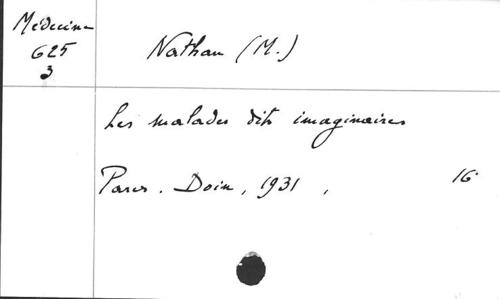 Médecine
625
3
Nathan (M.)
Les malades dits imaginaires
Paris. Doin, 1931, 16°